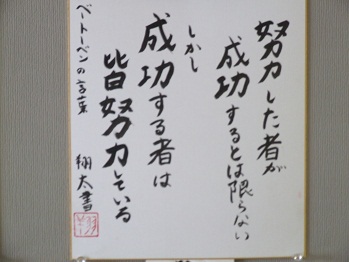 努力した者が
成功するとは限らない
しかし
成功する者は
皆努力している
ベートーベンの言葉
翔太書